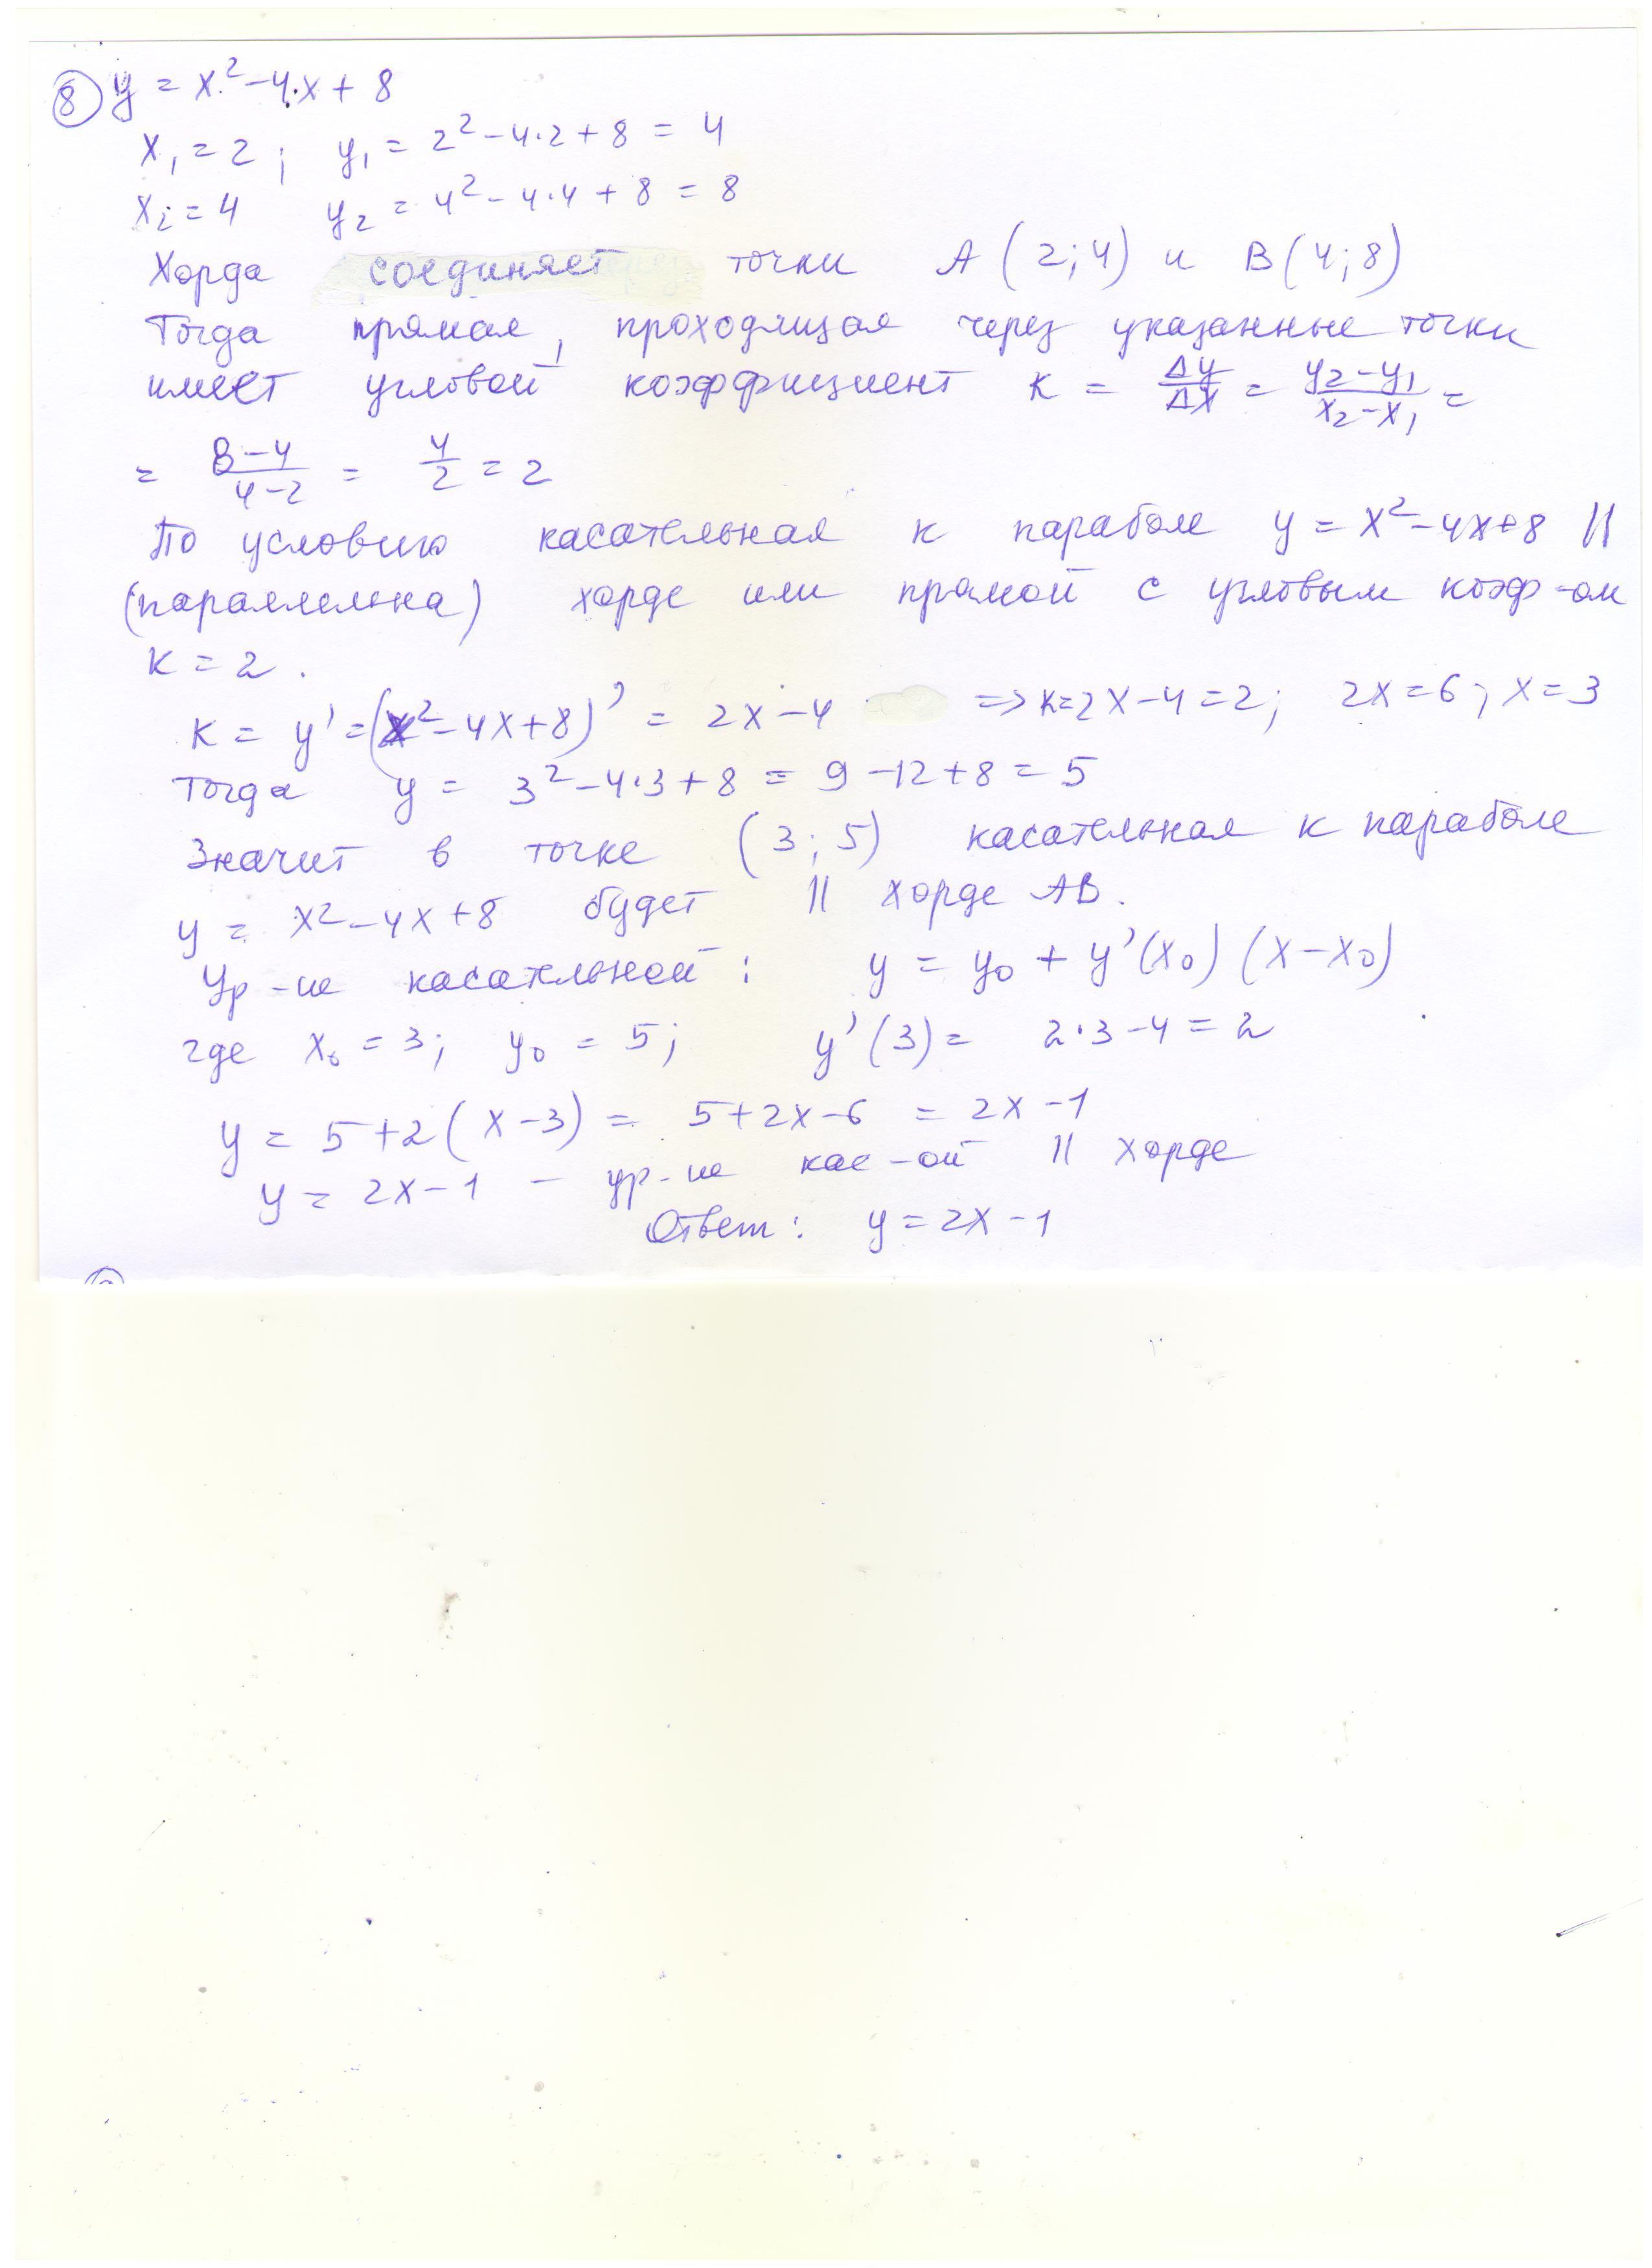 8 y = x² - 4·x + 8
x₁ = 2 ; y₁ = 2² - 4·2 + 8 = 4
x₂ = 4 y₂ = 4² - 4·4 + 8 = 8
Хорда соединяет точки A (2; 4) и B (4; 8)
Тогда прямая, проходящая через указанные точки
имеет угловой коэффициент к = Δy/Δx = (y₂-y₁)/(x₂-x₁) =
= (8-4)/(4-2) = 4/2 = 2
По условию касательная к параболе y = x² - 4x + 8 ||
(параллельна) хорде или прямой с угловым коэф-ом
к = 2 .
к = y' = (x² - 4x + 8)' = 2x - 4 => к=2x - 4 = 2; 2x = 6; x = 3
Тогда y = 3² - 4·3 + 8 = 9 - 12 + 8 = 5
Значит в точке (3; 5) касательная к параболе
y = x² - 4x + 8 будет || хорде AB.
Ур-ие касательной : y = y₀ + y'(x₀) (x - x₀)
где x₀ = 3; y₀ = 5; y'(3) = 2·3 - 4 = 2
y = 5 + 2(x - 3) = 5 + 2x - 6 = 2x - 1
y = 2x - 1 - ур-ие кас-ой || хорде
Ответ: y = 2x - 1